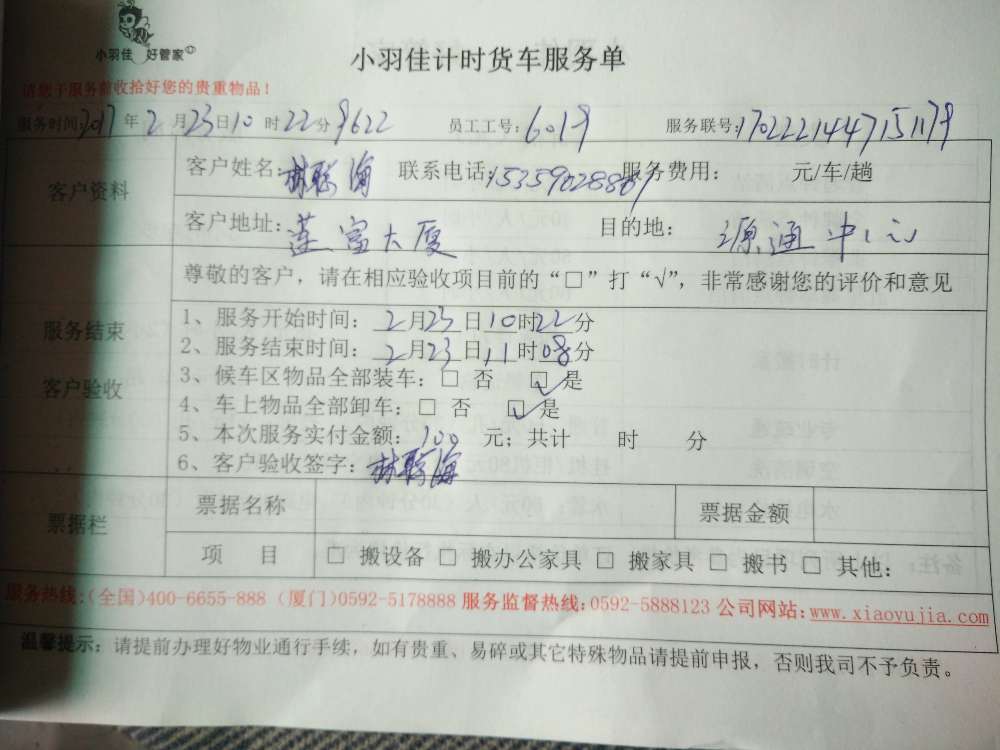 小羽佳 好管家
小羽佳计时货车服务单
请您于服务前收拾好您的贵重物品！
服务时间：2017年2月23日10时22分 9622 员工工号：6019 服务联号：
客户资料
客户姓名：林聪海 联系电话： 服务费用： 元/车/趟
客户地址：莲富大厦 目的地：源通中心
尊敬的客户，请在相应验收项目前的“□”打“√”，非常感谢您的评价和意见
服务结束
客户验收
1、服务开始时间：2月23日10时22分
2、服务结束时间：2月23日11时08分
3、候车区物品全部装车：□ 否 ☑ 是
4、车上物品全部卸车：□ 否 ☑ 是
5、本次服务实付金额：100 元；共计 时 分
6、客户验收签字：林聪海
票据栏
票据名称 票据金额
项 目 □ 搬设备 □ 搬办公家具 □ 搬家具 □ 搬书 □ 其他：
服务热线：(全国)400-6655-888 (厦门)0592-5178888 服务监督热线：0592-5888123 公司网站：www.xiaoyujia.com
温馨提示：请提前办理好物业通行手续，如有贵重、易碎或其它特殊物品请提前申报，否则我司不予负责。